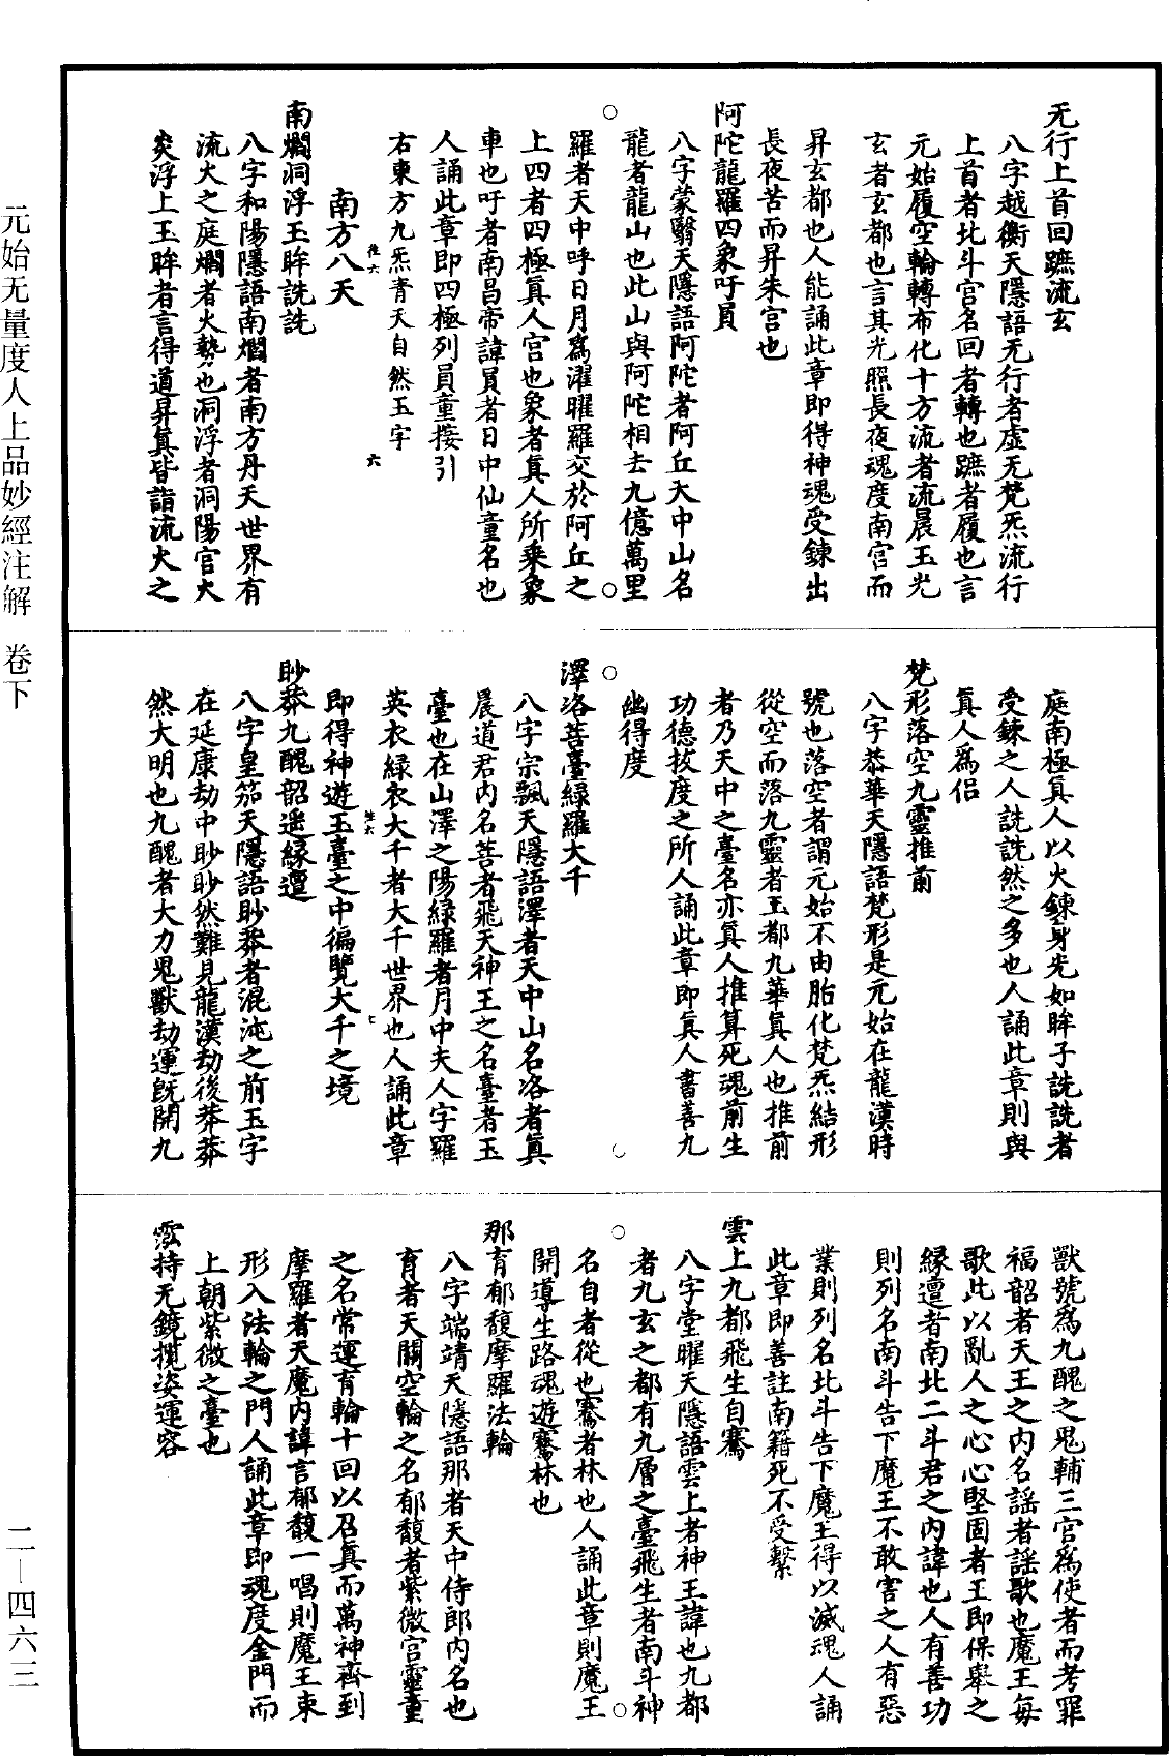 无行上首回蹠流玄
八字越衡天隱語无行者虛无梵炁流行
上首者北斗宮名回者轉也蹠者履也言
元始履空輪轉布化十方流者流晨玉光
玄者玄都也言其光照長夜魂度南宮而
昇玄都也人能誦此章即得神魂受鍊出
長夜苦而昇朱宮也
阿陀龍羅四象吁員
八字蒙翳天隱語阿陀者阿丘天中山名
龍者龍山也此山與阿陀相去九億萬里
羅者天中呼日月為濯曜羅交於阿丘之
上四者四極真人宮也象者真人所乘象
車也吁者南昌帝諱員者日中仙童名也
人誦此章即四極列員童接引
右東方九炁青天自然玉字
南方八天
南爓洞浮玉眸詵詵
八字和陽隱語南爓者南方丹天世界有
流火之庭爓者火勢也洞浮者洞陽宮大
炎浮上玉眸者言得道昇真皆詣流火之
庭南極真人以火鍊身光如眸子詵詵者
受鍊之人詵詵然之多也人誦此章則與
真人為侶
梵形落空九靈推前
八字恭華天隱語梵形是元始在龍漢時
號也落空者謂元始不由胎化梵炁結形
從空而落九靈者玉都九華真人也推前
者乃天中之臺名亦真人推算死魂前生
功德拔度之所人誦此章即真人書善九
幽得度
澤洛菩臺綠羅大千
八字宗飄天隱語澤者天中山名洛者真
晨道君內名菩者飛天神王之名臺者玉
臺也在山澤之陽綠羅者月中夫人字羅
英衣綠衣大千者大千世界也人誦此章
即得神遊玉臺之中徧覽大千之境
眇莽九醜韶遙緣邅
八字皇笳天隱語眇莽者混沌之前玉字
在延康劫中眇眇然難見龍漢劫後莽莽
然大明也九醜者大力鬼獸劫運既開九
獸號為九醜之鬼輔三官為使者而考罪
福韶者天王之內名謡者謡歌也魔王每
歌此以亂人之心心堅固者王即保舉之
緣邅者南北二斗君之內諱也人有善功
則列名南斗告下魔王不敢害之人有惡
業則列名北斗告下魔王得以滅魂人誦
此章即善註南籍死不受繫
雲上九都飛生自騫
八字堂曜天隱語雲上者神王諱也九都
者九玄之都有九層之臺飛生者南斗神
名自者從也騫者林也人誦此章則魔王
開導生路魂遊騫林也
那育郁馥摩羅法輪
八字端靖天隱語那者天中侍郎內名也
育者天關空輪之名郁馥者紫微宮靈童
之名常運育輪十回以召真而萬神齊到
摩羅者天魔內諱言郁馥一唱則魔王束
形入法輪之門人誦此章即魂度金門而
上朝紫微之臺也
霐持无鏡攬姿運容
元始无量度人上品妙經注解　卷下
二—四六三